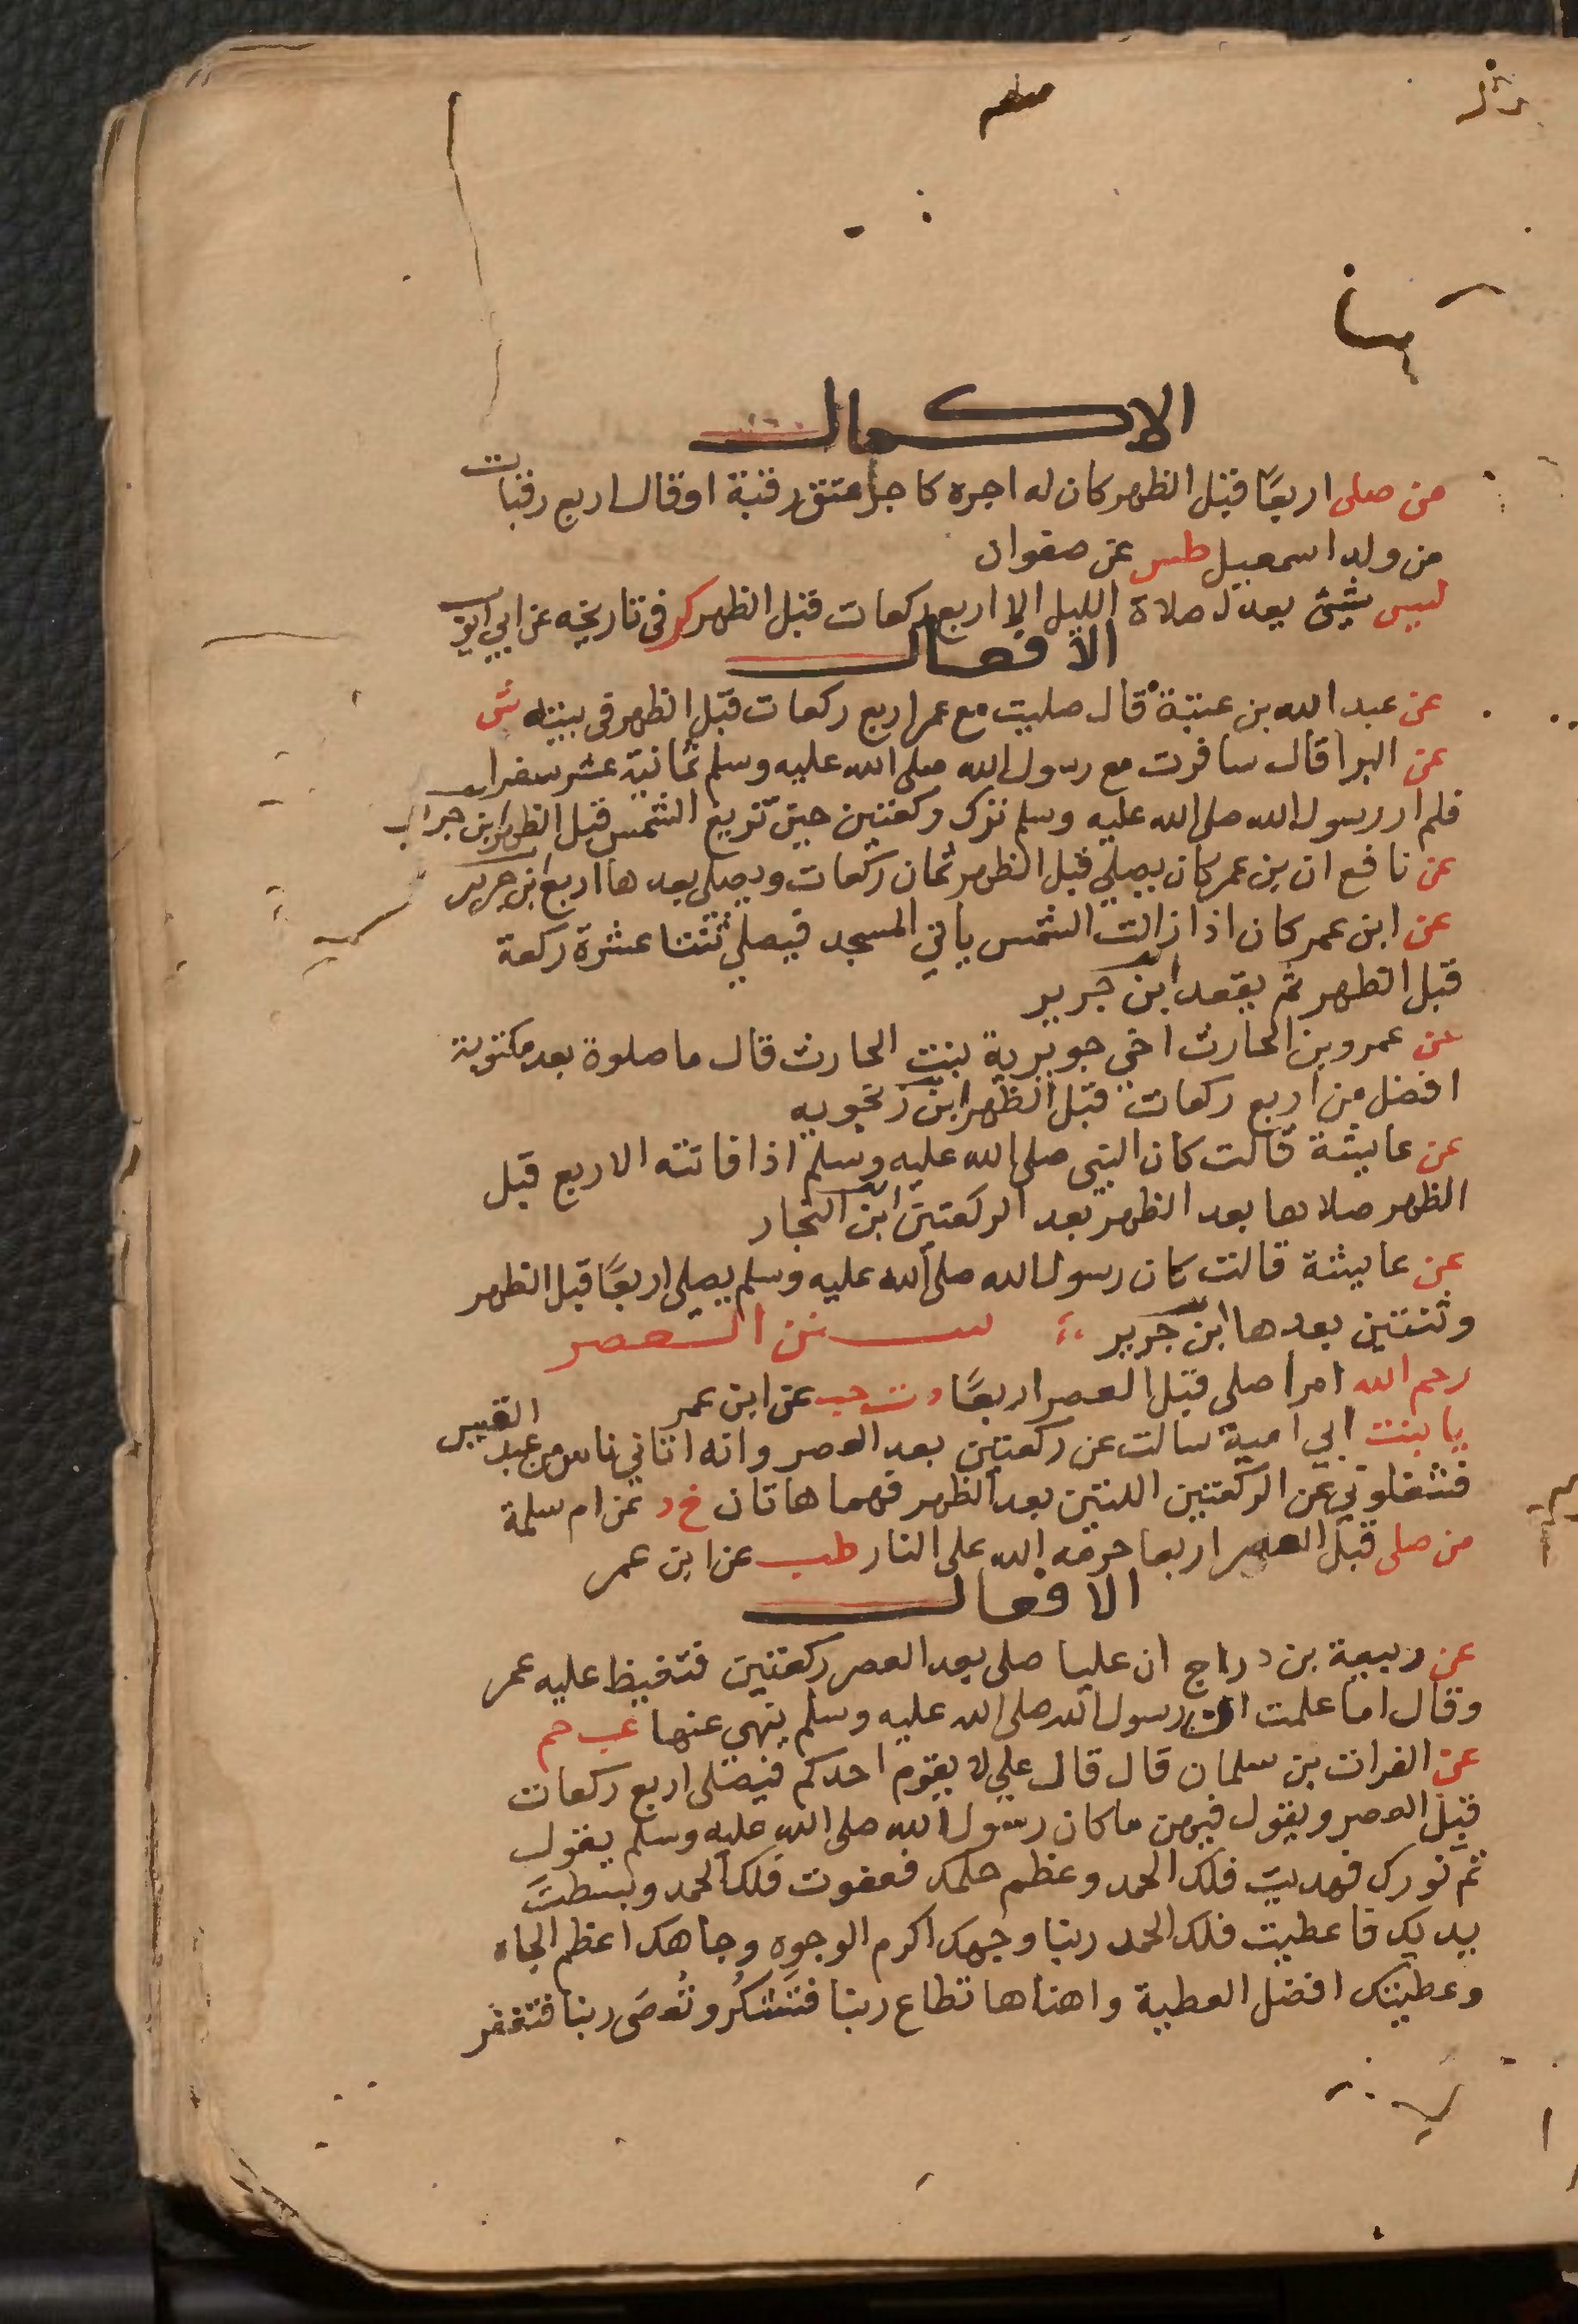 الاكمال
من صلى اربعًا قبل الظهر كان له اجره كاجر عتق رقبة او قال اربع رقبات
من ولد اسمعيل طس عن صفوان
ليس شئ يعدل صلاة الليل الا اربع ركعات قبل الظهر كر فى تاريخه عن ابي ايوب
الافعال
عن عبد الله بن عتبة قال صليت مع عمر اربع ركعات قبل الظهر فى بيته ش
عن البرا قال سافرت مع رسول الله صلى الله عليه وسلم ثمانية عشر سفرا
فلم ار رسول الله صلى الله عليه وسلم ترك ركعتين حين تزيغ الشمس قبل الظهر ابن جرير
عن نافع ان بن عمر كان يصلي قبل الظهر ثمان ركعات ويصلى بعدها اربع ابن جرير
عن ابن عمر كان اذا زالت الشمس ياتي المسجد فيصلي ثنتا عشرة ركعة
قبل الظهر ثم يقعد ابن جرير
عن عمرو بن الحارث اخي جويرية بنت الحارث قال ما صلوة بعد مكتوبة
افضل من اربع ركعات قبل الظهر ابن زنجويه
عن عايشة قالت كان النبى صلى الله عليه وسلم اذا فاتته الاربع قبل
الظهر صلاها بعد الظهر بعد الركعتين ابن النجار
عن عايشة قالت كان رسول الله صلى الله عليه وسلم يصلى اربعًا قبل الظهر
وثنتين بعدها ابن جرير سنن العصر
رحم الله امرا صلى قبل العصر اربعًا د ت حب عن ابن عمر
يا بنت ابي امية سالت عن ركعتين بعد العصر وانه اتاني ناس من عبد القيس
فشغلوني عن الركعتين اللتين بعد الظهر فهما هاتان خ د عن ام سلمة
من صلى قبل العصر اربعا حرمه الله على النار طب عن ابن عمر
الافعال
عن ربيعة بن دراج ان عليا صلى بعد العصر ركعتين فتغيظ عليه عمر
وقال اما علمت ان رسول الله صلى الله عليه وسلم ينهى عنها عب حم
عن الفرات بن سلمان قال قال علي لا يقوم احدكم فيصلى اربع ركعات
قبل العصر ويقول فيهن ما كان رسول الله صلى الله عليه وسلم يقول
تم نورك فهديت فلك الحمد وعظم حلمك فعفوت فلك الحمد وبسطتَ
يديك فاعطيت فلك الحمد ربنا وجهك اكرم الوجوه وجاهك اعظم الجاه
وعطيتك افضل العطية واهناها تطاع ربنا فتَشكُر وتُعصَى ربنا فتغفر